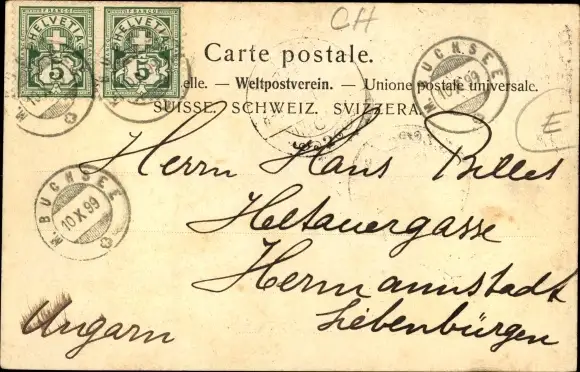 FRANCO FRANCO
HELVETIA HELVETIA
5 5
CH
Carte postale.
elle. — Weltpostverein. — Unione postale universale.
SUISSE. SCHWEIZ. SVIZZERA.
M. BUCHSEE
10 X 99
E
M. BUCHSEE
10 X 99
Herrn Hans Billes
Heltauergasse
Hermannstadt
Siebenbürgen
Ungarn